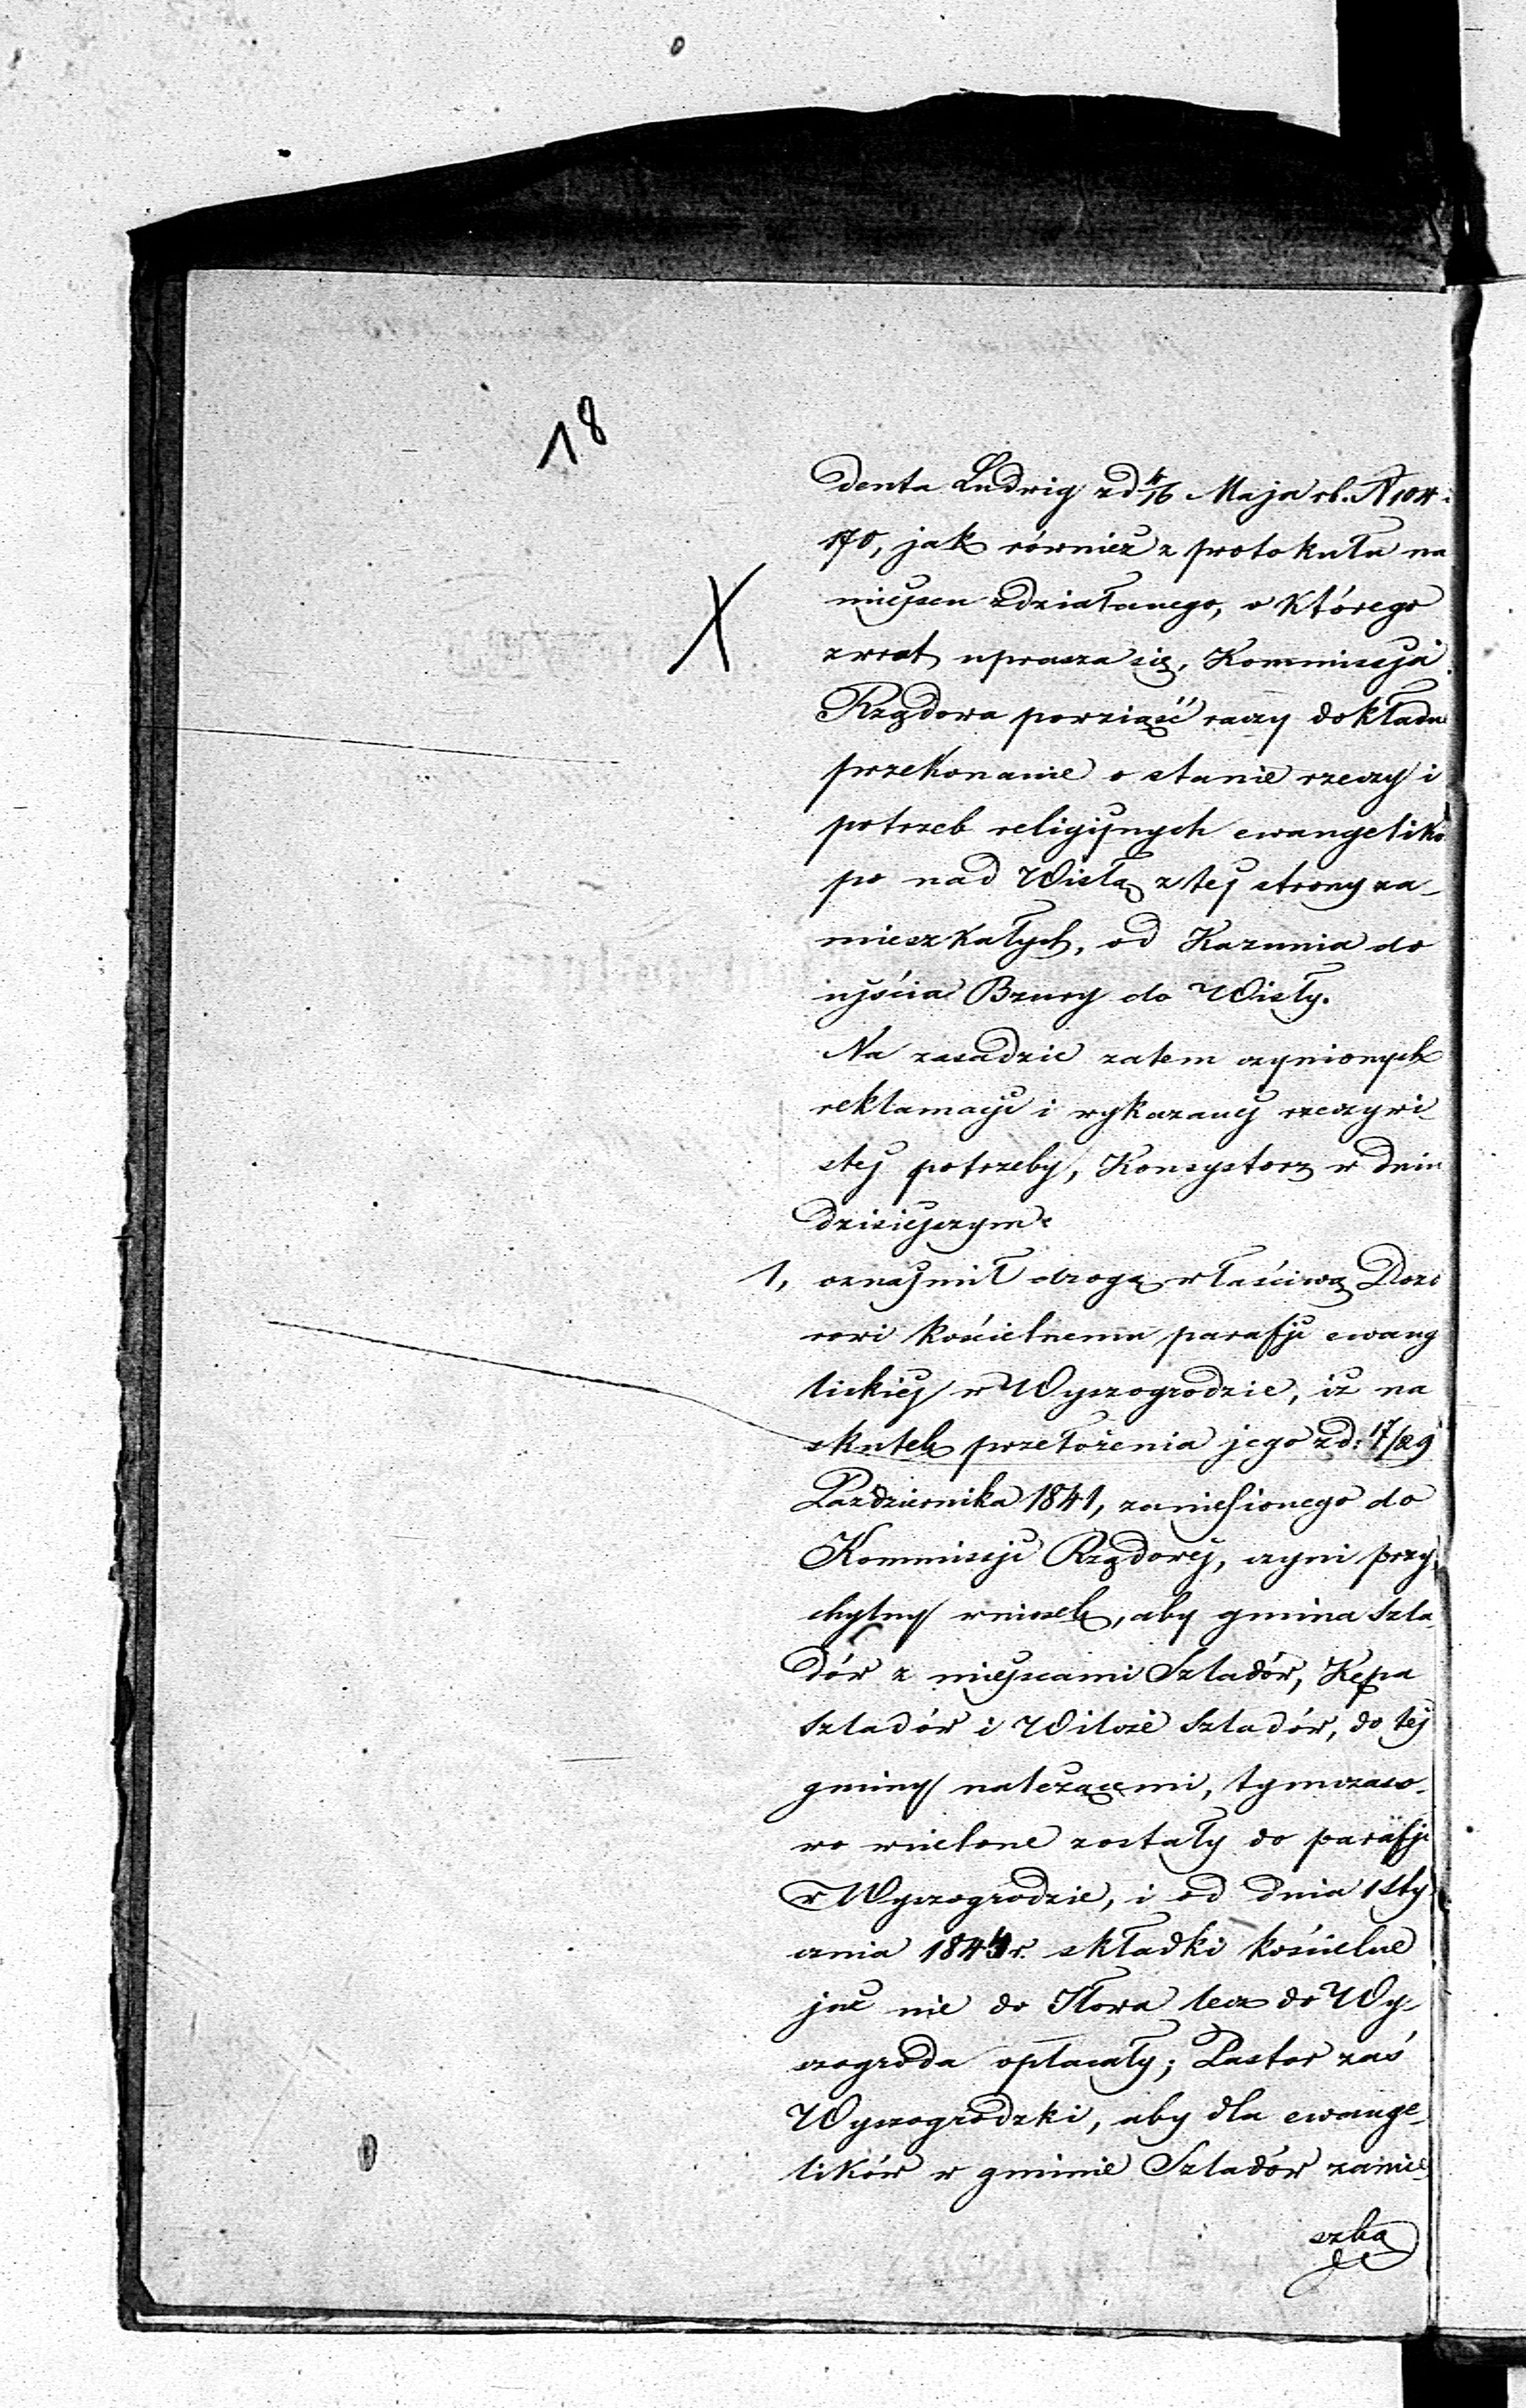 18
denta Ludwig z d 4/16 Maja rb. N 104 i
170, jak również z protokułu na
miejscu zdziałanego, o którego
zwrot uprasza się, Kommissja
Rządowa powziąść raczy dokładne
przekonanie o stanie rzeczy i
potrzeb religijnych ewangelikó
po nad Wisłą z tej strony za-
mieszkałych, od Kazunia do
ujścia Bzury do Wisły.
Na zasadzie zatem czynionych
reklamacji i wykazanej rzeczywi-
stej potrzeby, Konsystorz w dniu
dzisiejszym:
1, oznajmił drogą właściwą Dozo
rowi kościelnemu parafji ewang
lickiej w Wyszogrodzie, iż na
skutek przełożenia jego z d: 17/29
Października 1841, zaniesionego do
Kommissji Rządowej, czyni przy-
chylny wniosek, aby gmina Szla-
dów z miejscami Szladów, Kępa
Szladów i Wilcze Szladów, do tej
gminy należącemi, tymczaso-
wo wcielone zostały do parafji
w Wyszogrodzie, i od dnia 1 Sty-
cznia 1844 r. składki kościelne
już nie do Iłowa lecz do Wy-
szogroda opłacały; Pastor zaś
Wyszogrodzki, aby dla ewange-
lików w gminie Szladów zamie-
szka